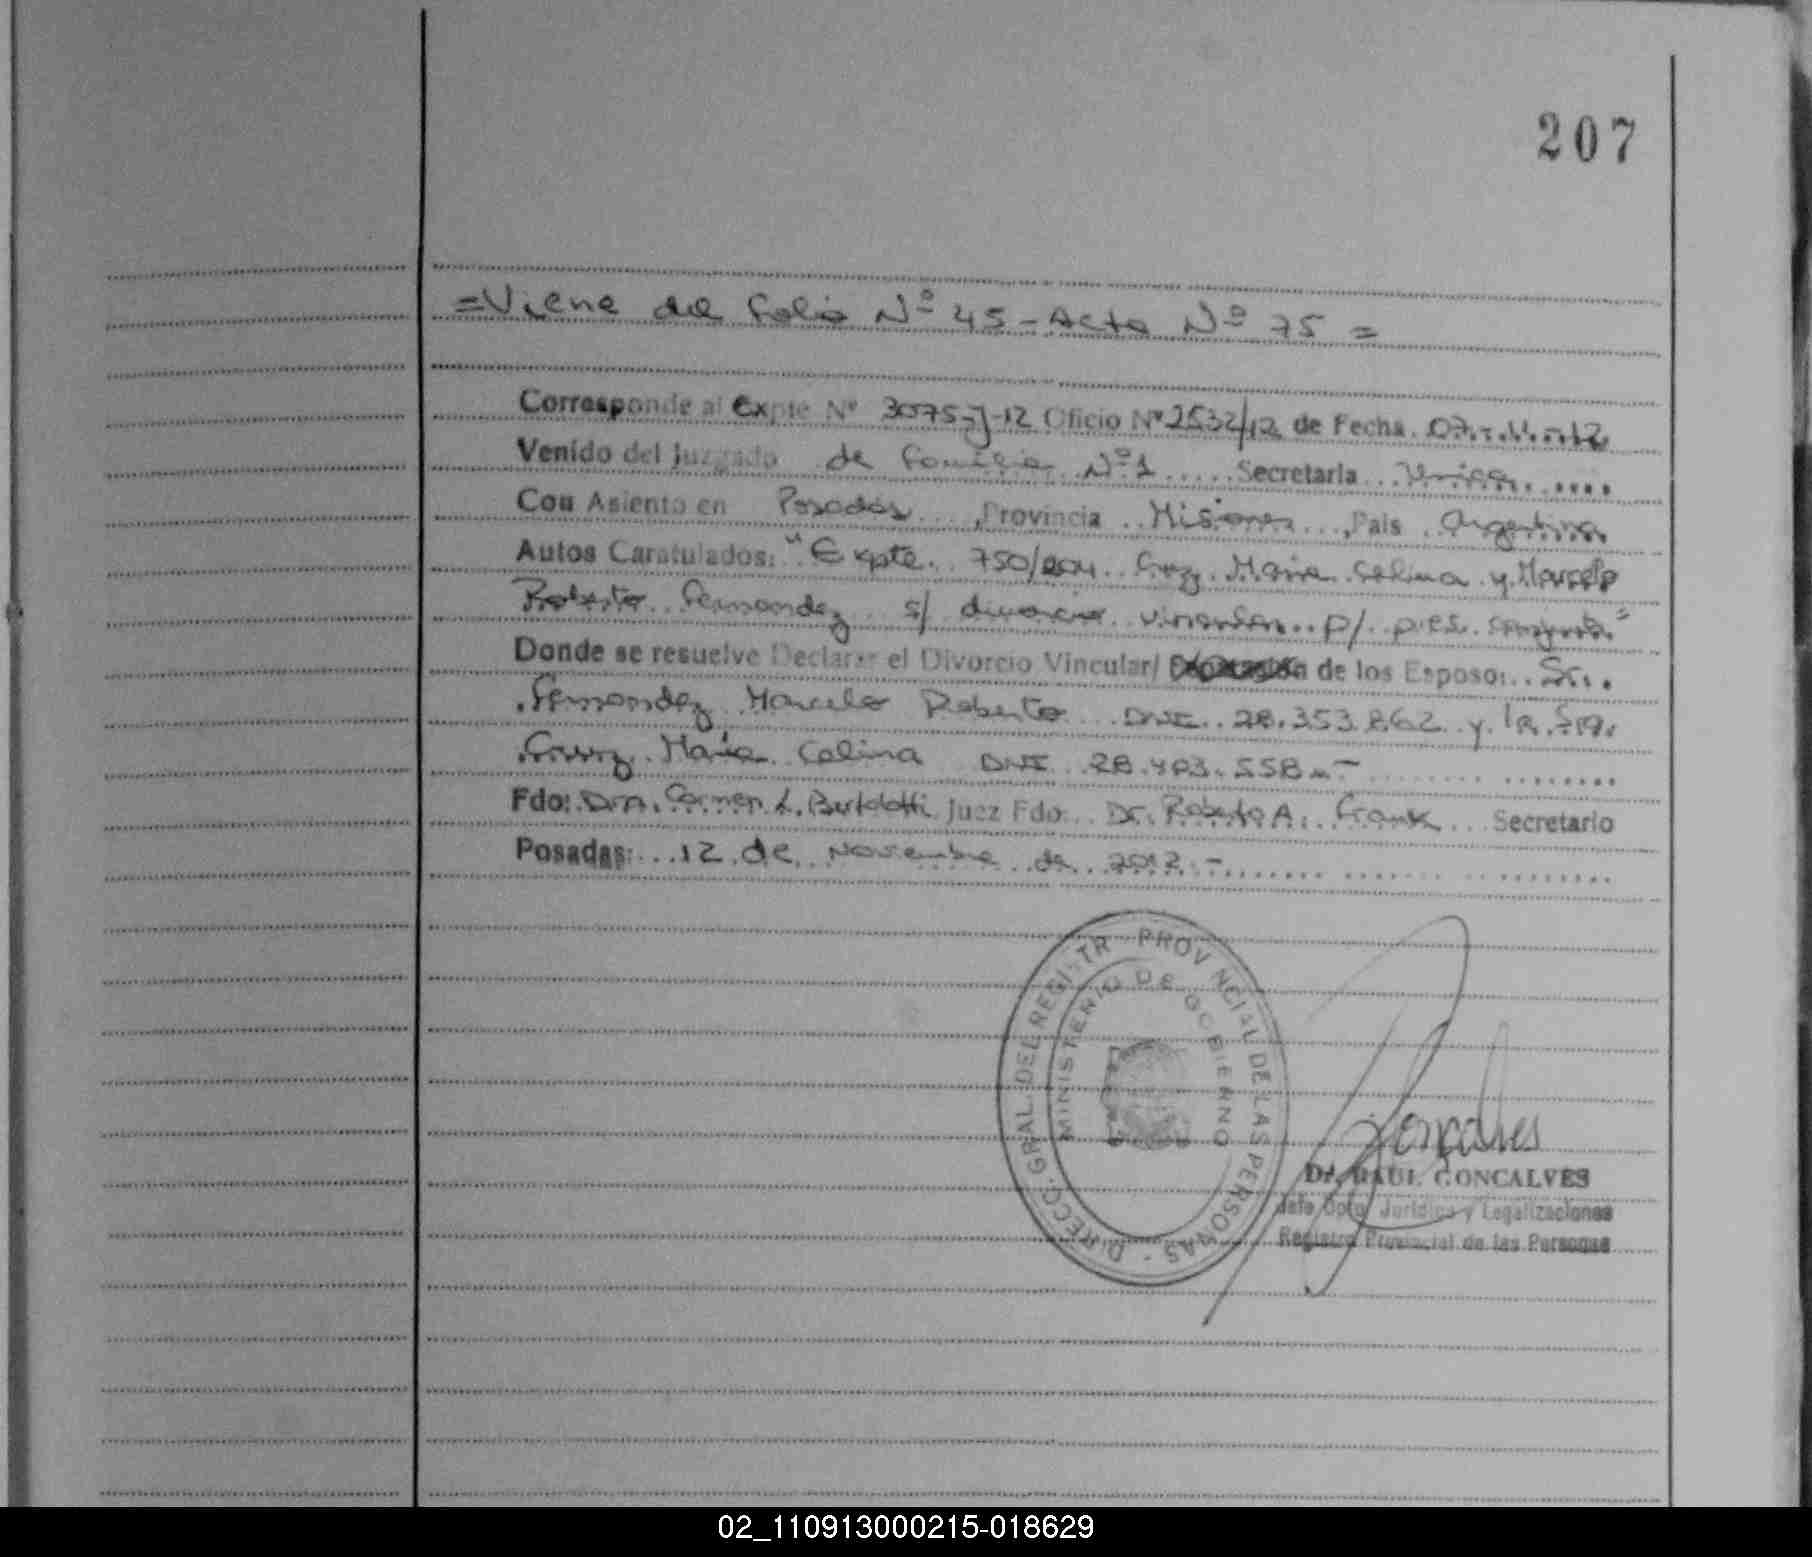 207
=Viene del folio Nº 45 - Acta Nº 75 =
Corresponde al Expte Nº 3075-J-12 Oficio Nº 2532/12 de Fecha 07-11-12
Venido del Juzgado de Familia Nº 1 Secretaria Unica
Con Asiento en Posadas, Provincia Misiones, Pais Argentina
Autos Caratulados: "Expte. 750/2004 Cruz Maria Celina y Marcelo
Roberto Fernandez s/ divorcio vincular p/ pres. conjunta"
Donde se resuelve Declarar el Divorcio Vincular/ de los Esposo: Sr.
Fernandez Marcelo Roberto DNI 28.353.862 y la Sra.
Cruz Maria Celina DNI 28.403.558.-
Fdo: Dra. Carmen L. Bertolotti Juez Fdo: Dr. Roberto A. Frank Secretario
Posadas: 12 de Noviembre de 2012.-
DIRECC. GRAL. DEL REGISTR PROVINCIAL DE LAS PERSONAS -
MINISTERIO DE GOBIERNO
Goncalves
Dr. RAUL GONCALVES
Jefe Dpto. Juridico y Legalizaciones
Registro Provincial de las Personas
02_110913000215-018629